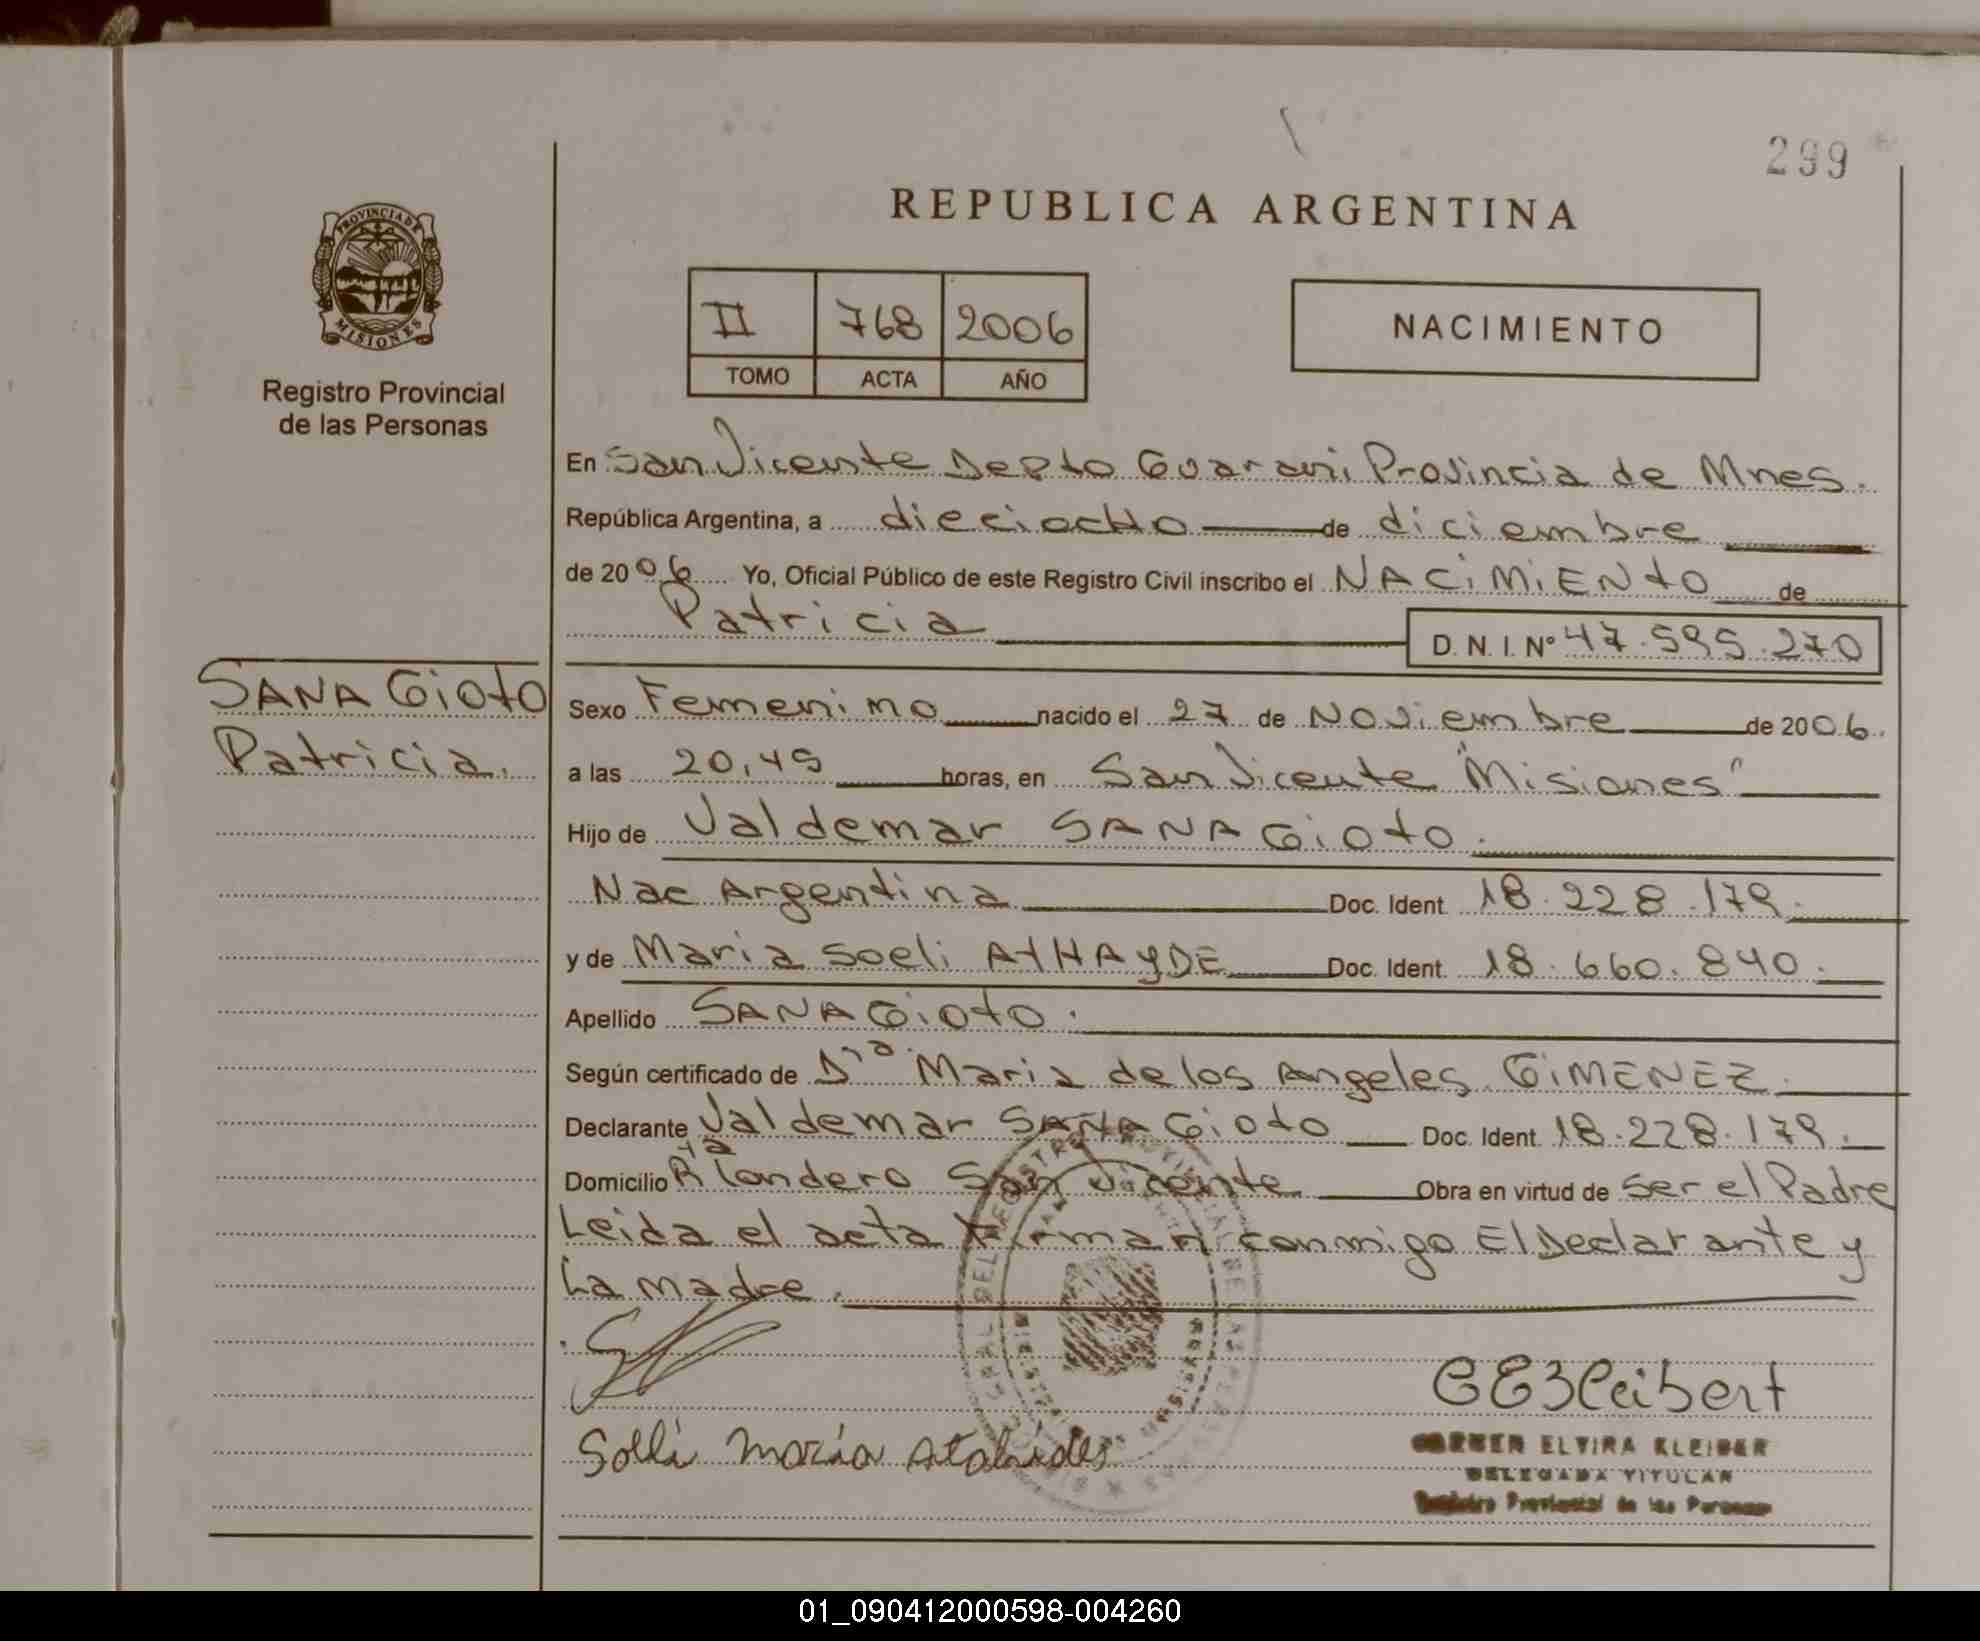 299
REPUBLICA ARGENTINA
PROVINCIA DE
MISIONES
Registro Provincial
de las Personas
II 768 2006
TOMO ACTA AÑO
NACIMIENTO
En San Vicente Depto Guarani Provincia de Mnes.
República Argentina, a dieciocho de diciembre
de 2006 Yo, Oficial Público de este Registro Civil inscribo el NACIMIENTO de
Patricia
D. N. I. Nº 47.595.270
SANAGIOTO
Patricia.
Sexo Femenino nacido el 27 de Noviembre de 2006.
a las 20,45 horas, en San Vicente "Misiones"
Hijo de Valdemar SANAGIOTO.
Nac Argentina Doc. Ident. 18.228.179.
y de Maria Soeli ATHAYDE Doc. Ident. 18.660.840.
Apellido SANAGIOTO.
Según certificado de Dra Maria de los Angeles GIMENEZ.
Declarante Valdemar SANAGIOTO Doc. Ident. 18.228.179.
Domicilio Londero San Vicente Obra en virtud de ser el Padre
Leida el acta firman conmigo El Declarante y
La madre.
Solli Maria
CARMEN ELVIRA KLEIBER
DELEGADA TITULAR
Registro Provincial de las Personas
01_090412000598-004260